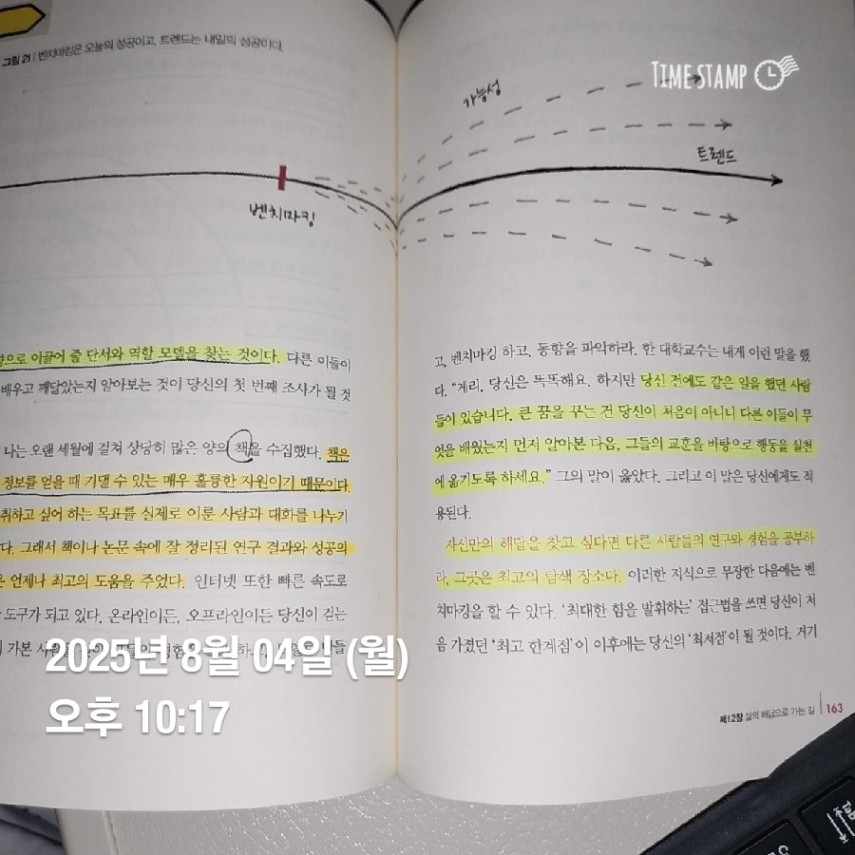 그림 21 | 벤치마킹은 오늘의 성공이고, 트렌드는 내일의 성공이다.
벤치마킹
향으로 이끌어 줄 단서와 역할 모델을 찾는 것이다. 다른 이들이
배우고 깨달았는지 알아보는 것이 당신의 첫 번째 조사가 될 것
나는 오랜 세월에 걸쳐 상당히 많은 양의 책을 수집했다. 책은
정보를 얻을 때 기댈 수 있는 매우 훌륭한 자원이기 때문이다.
취하고 싶어 하는 목표를 실제로 이룬 사람과 대화를 나누기
다. 그래서 책이나 논문 속에 잘 정리된 연구 결과와 성공의
은 언제나 최고의 도움을 주었다. 인터넷 또한 빠른 속도로
도구가 되고 있다. 온라인이든, 오프라인이든 당신이 걷는
가본
TIME STAMP
가능성
트렌드
고, 벤치마킹 하고, 동향을 파악하라. 한 대학교수는 내게 이런 말을 했
다. "게리, 당신은 똑똑해요. 하지만 당신 전에도 같은 일을 했던 사람
들이 있습니다. 큰 꿈을 꾸는 건 당신이 처음이 아니니 다른 이들이 무
엇을 배웠는지 먼저 알아본 다음, 그들의 교훈을 바탕으로 행동을 실천
에 옮기도록 하세요." 그의 말이 옳았다. 그리고 이 말은 당신에게도 적
용된다.
자신만의 해답을 찾고 싶다면 다른 사람들의 연구와 경험을 공부하
라. 그곳은 최고의 탐색 장소다. 이러한 지식으로 무장한 다음에는 벤
치마킹을 할 수 있다. '최대한 힘을 발휘하는' 접근법을 쓰면 당신이 처
음 가졌던 '최고 한계점'이 이후에는 당신의 '최저점'이 될 것이다. 거기
제12장 삶의 해답으로 가는 길 | 163
2025년 8월 04일 (월)
오후 10:17